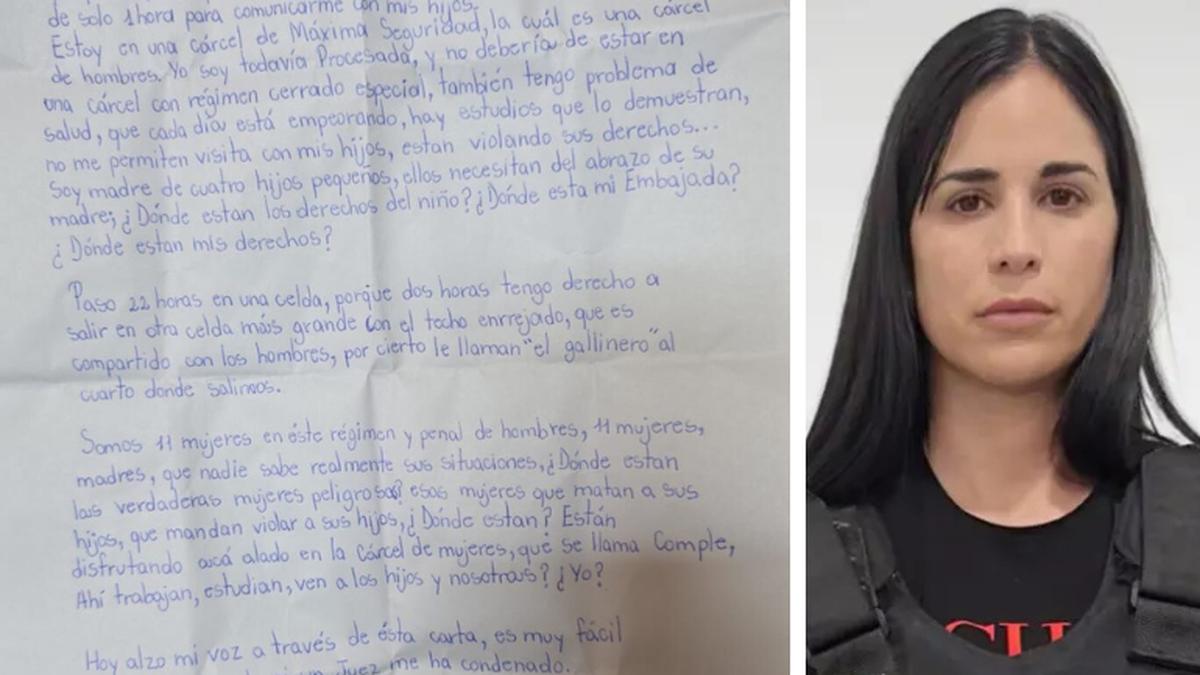 de solo 1 hora para comunicarme con mis hijos.
Estoy en una cárcel de Máxima Seguridad, la cuál es una cárcel
de hombres. Yo soy todavía Procesada, y no debería de estar en
una cárcel con régimen cerrado especial, también tengo problema de
salud, que cada día está empeorando, hay estudios que lo demuestran,
no me permiten visita con mis hijos, estan violando sus derechos...
Soy madre de cuatro hijos pequeños, ellos necesitan del abrazo de su
madre; ¿Dónde estan los derechos del niño? ¿Dónde esta mi Embajada?
¿Dónde estan mis derechos?
Paso 22 horas en una celda, porque dos horas tengo derecho a
salir en otra celda más grande con el techo enrrejado, que es
compartido con los hombres, por cierto le llaman "el gallinero" al
cuarto donde salimos.
Somos 11 mujeres en éste régimen y penal de hombres, 11 mujeres,
madres, que nadie sabe realmente sus situaciones, ¿Dónde estan
las verdaderas mujeres peligrosas? esas mujeres que matan a sus
hijos, que mandan violar a sus hijos, ¿Dónde estan? Están
disfrutando acá alado en la cárcel de mujeres, qué se llama Comple,
Ahí trabajan, estudian, ven a los hijos y nosotras? ¿Yo?
Hoy alzo mi voz a través de ésta carta, es muy fácil
Juez me ha condenado.